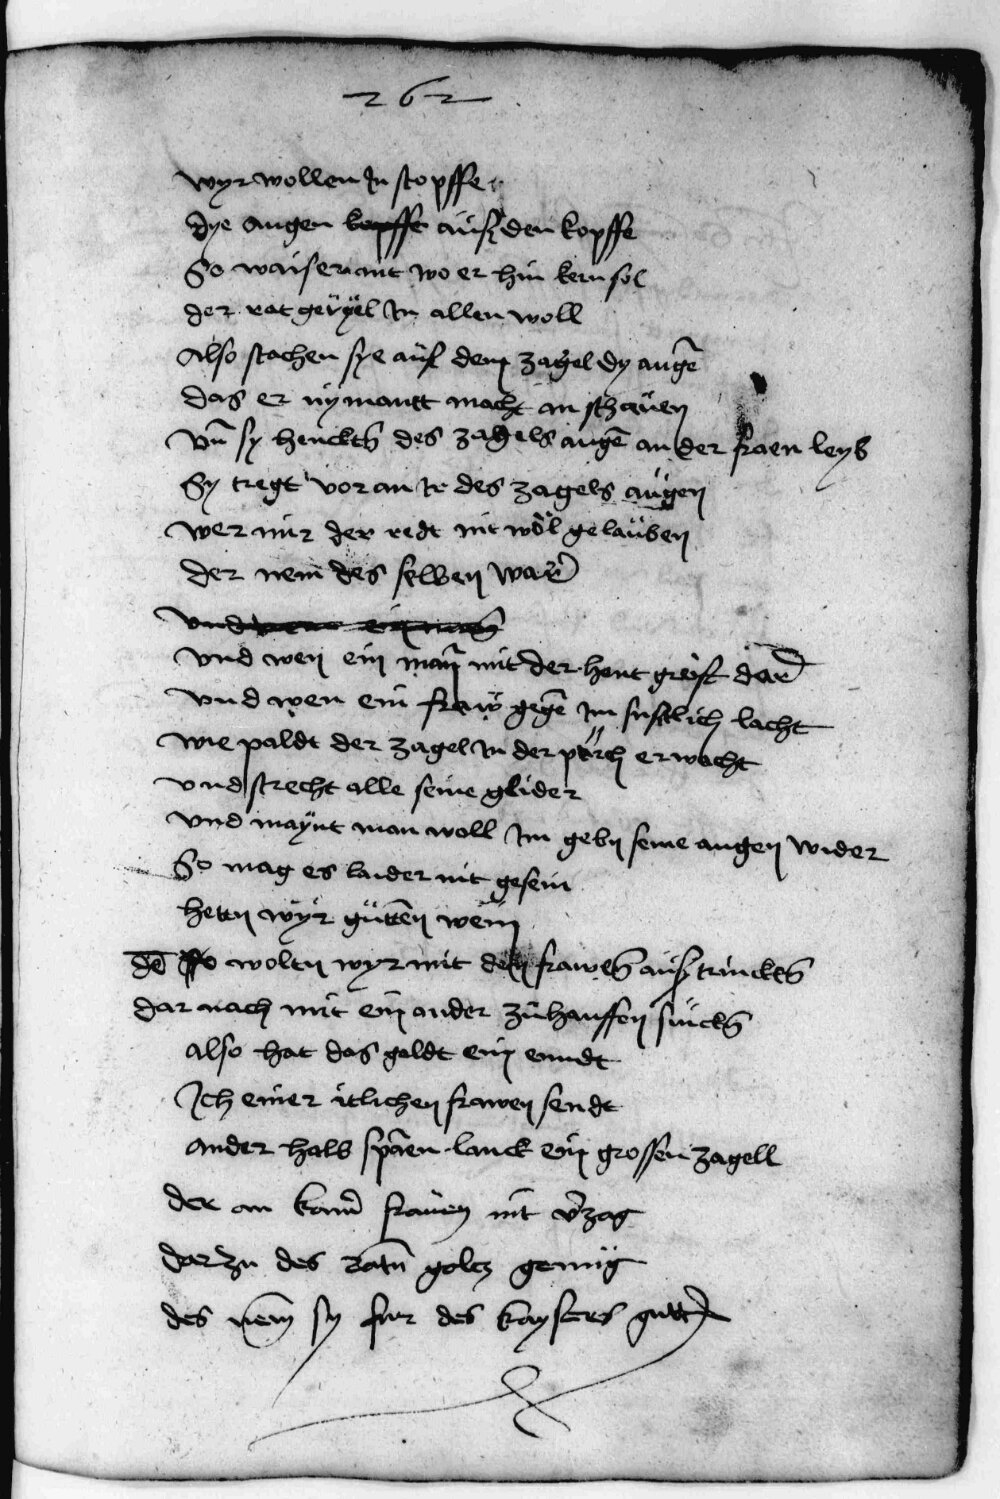 262
wyr wollen Jn stopffe
dye augen kopffe auß den kopffe
So waiser nit wo er hin kern sol
der rat geuyel Jn allen woll
Also stachen sye auß dem zagel dy augē
das er nymantt macht an schauen
vn̄ sy henckts des zagels augē an der fraen leyb
Sy tregt vor an Jr des zagels augen
wer mir der redt nit wöl gelauben
der nem des selben war
vnd wen ein
vnd wen ein man mit der hent greift dar
vnd wen ein fraw gegē Jm lustlich lacht
wie paldt der zagel Jn der pruch erwacht
vnd streckt alle seine glider
vnd maynt man woll Jm gebn seine augen wider
So mag es laider nit gesein
hettn wyr gutten wein
dē so wolten wyr mit den frawen auß trincken
dar nach mit ein ander zu hauffen sincken
also hat das geldt ein enndt
Jch einer itlichen frawen sendt
ander halb spaen lanck ein grossen zagell
der an kainer frauen nit verzag
dar zu des rattn goltz genug
des nem sy fur des kaysers gutt